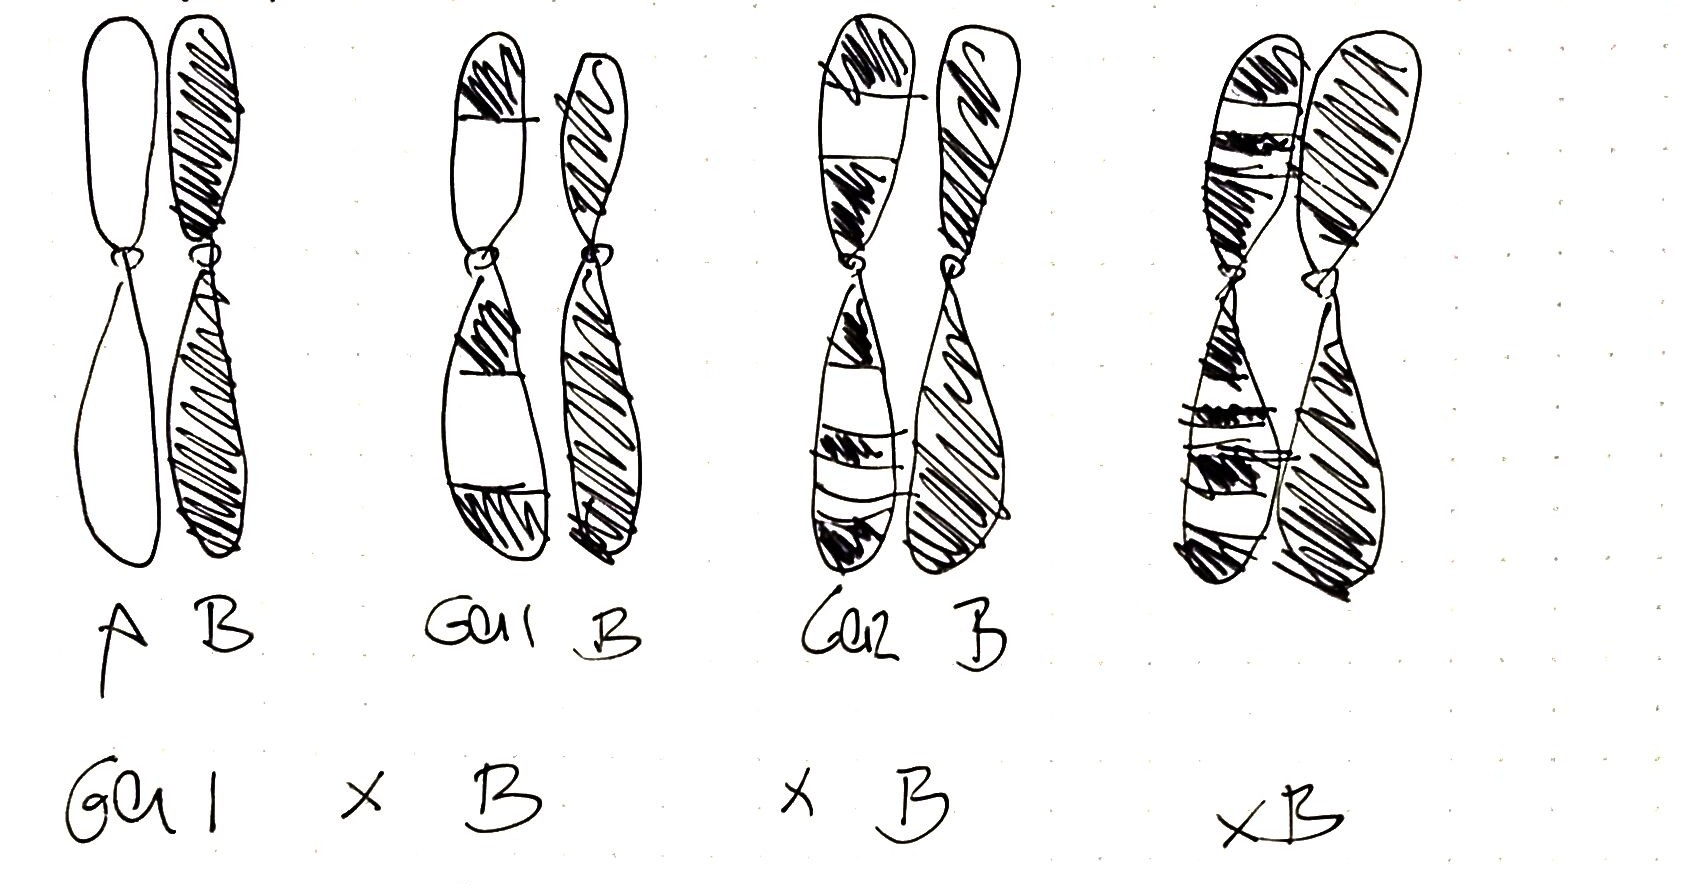 A B Gen1 B Gen2 B
Gen 1 x B x B x B